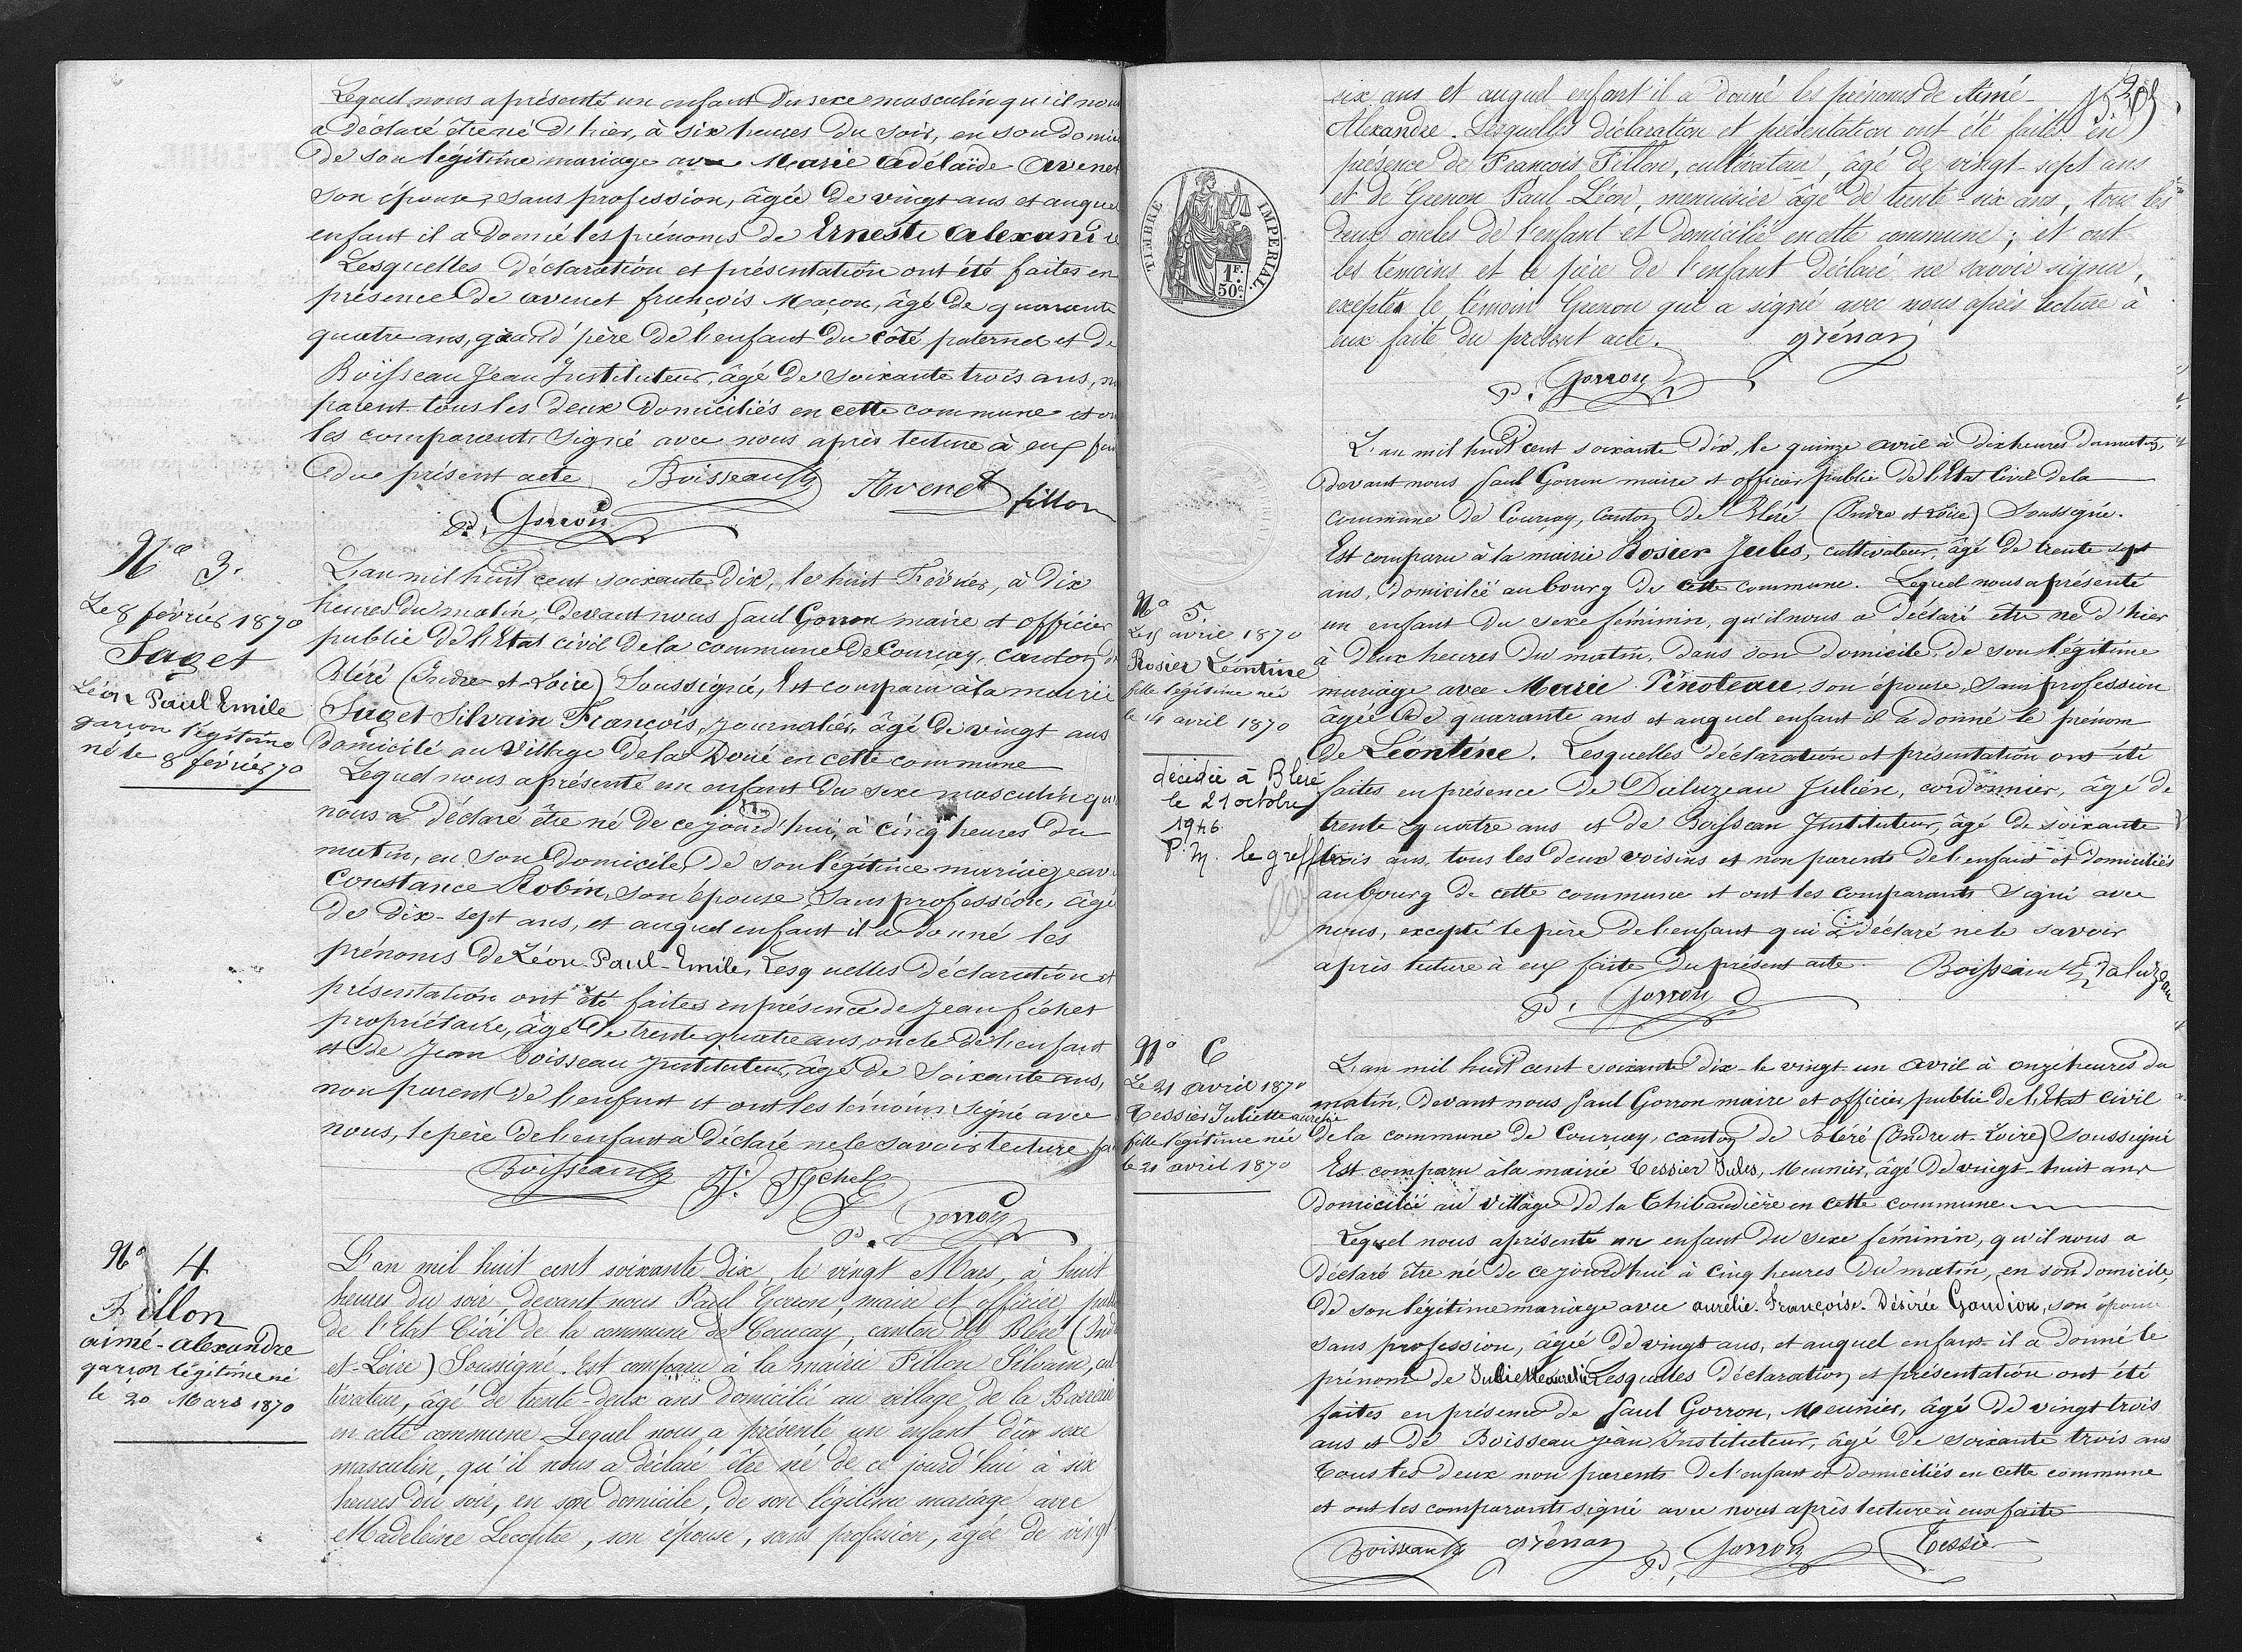 Lequel nous a présenté un enfant du sexe masculin qu'il nous
a déclaré être né d'hier, à six heures du soir, en son domi
de son légitime mariage avec Marie Adélaïde Avenet
son épouse, sans profession, âgée de vingt ans et auquel
enfant il a donné les prénoms de Erneste Alexandre
Lesquelles déclaration et présentation ont été faites en
présence de avenet françois Maçon, âgé de quarante
quatre ans, grand'père de l'enfant du côté paternel et de
Boisseau Jean Instituteur, âgé de soixante trois ans, n
parent tous les deux domiciliés en cette commune et on
les comparents signé avec nous après lecture à eux fai
du présent acte Boisseau Avenet fillon
P. Gorron
N° 3.
Le 8 février 1870
Saget
Léon Paul Emile
garçon légitime
né le 8 février 70
L'an mil huit cent soixante dix, le huit Février, à dix
heures du matin, devant nous Paul Gorron maire et officier
public de l'Etat civil de la commune de Courçay, canton de
Bléré (Indre-et-Loire) Soussigné, Est comparu à la mairie
Saget Silvain François, journalier, âgé de vingt ans
domicilé au village de la Doué en cette commune
Lequel nous a présenté un enfant du sexe masculin qu'il
nous a déclaré être né de ce jourd'hui à cinq heures du
matin, en son domicile, de son légitime mariage avec
Constance Robin, son épouse, Sans profession, âgé
de dix-sept ans, et auquel enfant il a donné les
prénoms de Léon-Paul-Emile, Lesquelles déclaration et
présentation ont été faites en présence de Jean fichet
propriétaire, âgé de trente quatre ans, oncle de l'enfant
et de Jean Boisseau Instituteur, âgé de Soixante ans,
non parent de l'enfant et ont les témoins signé avec
nous, le père de l'enfant a déclaré ne le savoir lecture fa
Boisseau J. Fichet
P. Gorron
N° 4
Fillon
aimé-alexandre
garçon légitime né
le 20 Mars 1870
L'an mil huit cent soixante dix, le vingt Mars, à huit
heures du soir, devant nous Paul Gorron, maire et officier pub
de l'Etat Civil de la commune de Courçay, canton de Bléré (Ind
et-Loire) Soussigné. Est comparu à la mairie Fillon Silvain, cul
tivateur, âgé de trente-deux ans domicilié au village de la
en cette commune. Lequel nous a présenté un enfant du sexe
masculin, qu'il nous a déclaré être né de ce jourd'hui à six
heures du soir, en son domicile, de son légitime mariage avec
Madeleine, son épouse, sans profession, âgée de vingt
six ans et auquel enfant il a donné les prénoms de Aimé-
Alexandre. Lesquelles déclaration et présentation ont été faites en
présence de François Fillon, cultivateur, âgé de vingt-sept ans
et de Grenon Paul-Léon, menuisier âgé de trente-six ans, tous les
deux oncles de l'enfant et domicilié en cette commune ; et ont
les témoins et le père de l'enfant déclaré ne savoir signer,
excepté le témoin Grenon qui a signé avec nous après lecture à
eux faite du présent acte. grénon
P. Gorron
TIMBRE IMPERIAL
1F.
50c.
L'an mil huit cent soixante dix, le quinze avril à dix heures du matin,
devant nous Paul Gorron maire et officier public de l'Etat Civil de la
commune de Courçay, canton de Bléré (Indre et Loire) Soussigné.
Est comparu à la mairie Rosier Jules, cultivateur, âgé de trente sept
ans, domicilié au bourg de cette commune. Lequel nous a présenté
N° 5.
Le 15 avril 1870
Rosier Léontine
fille légitime née
le 14 avril 1870
décédée à Bléré
le 21 octobre
1946
P. M. le greffier
un enfant du sexe féminin, qu'il nous a déclaré être né d'hier
à deux heures du matin, dans son domicile, de son légitime
mariage avec Marie Pinoteau, son épouse, sans profession
âgée de quarante ans et auquel enfant il a donné le prénom
de Léontine. Lesquelles déclaration et présentation ont été
faites en présence de Daluzeau Julien, cordonnier, âgé de
trente quatre ans et de Boisseau Instituteur, âgé de soixante
trois ans, tous les deux voisins et non parents de l'enfant et domiciliés
au bourg de cette commune et ont les comparants signé avec
nous, excepté le père de l'enfant qui a déclaré ne le savoir
après lecture à eux faite du présent acte. Boisseau Daluzeau
P. Gorron
N° 6
Le 21 avril 1870
Tessier Juliette aurelie
fille légitime née
le 21 avril 1870
L'an mil huit cent soixante dix-le vingt-un avril à onze heures du
matin, devant nous Paul Gorron maire et officier public de l'Etat civil
de la commune de Courçay, canton de Bléré (Indre et-Loire) Soussigné
Est comparu à la mairie Tessier Jules, Meunier, âgé de vingt-huit ans
domicilié au village de la Thibaudière en cette commune
Lequel nous a présenté un enfant du sexe féminin, qu'il nous a
déclaré être né de ce jourd'hui à cinq heures du matin, en son domicile,
de son légitime mariage avec aurélie-Françoise-Désirée Gaudion, son épouse
sans profession, âgée de vingt ans, et auquel enfant il a donné le
prénom de Juliette aurelie Lesquelles déclaration et présentation ont été
faites en présence de Paul Gorron, Meunier, âgé de vingt trois
ans et de Boisseau Jean Instituteur, âgé de soixante trois ans
Tous les deux non parents de l'enfant et domiciliés en cette commune
et ont les comparants signé avec nous après lecture à eux faite
Boisseau grénon P. Gorron Tessier